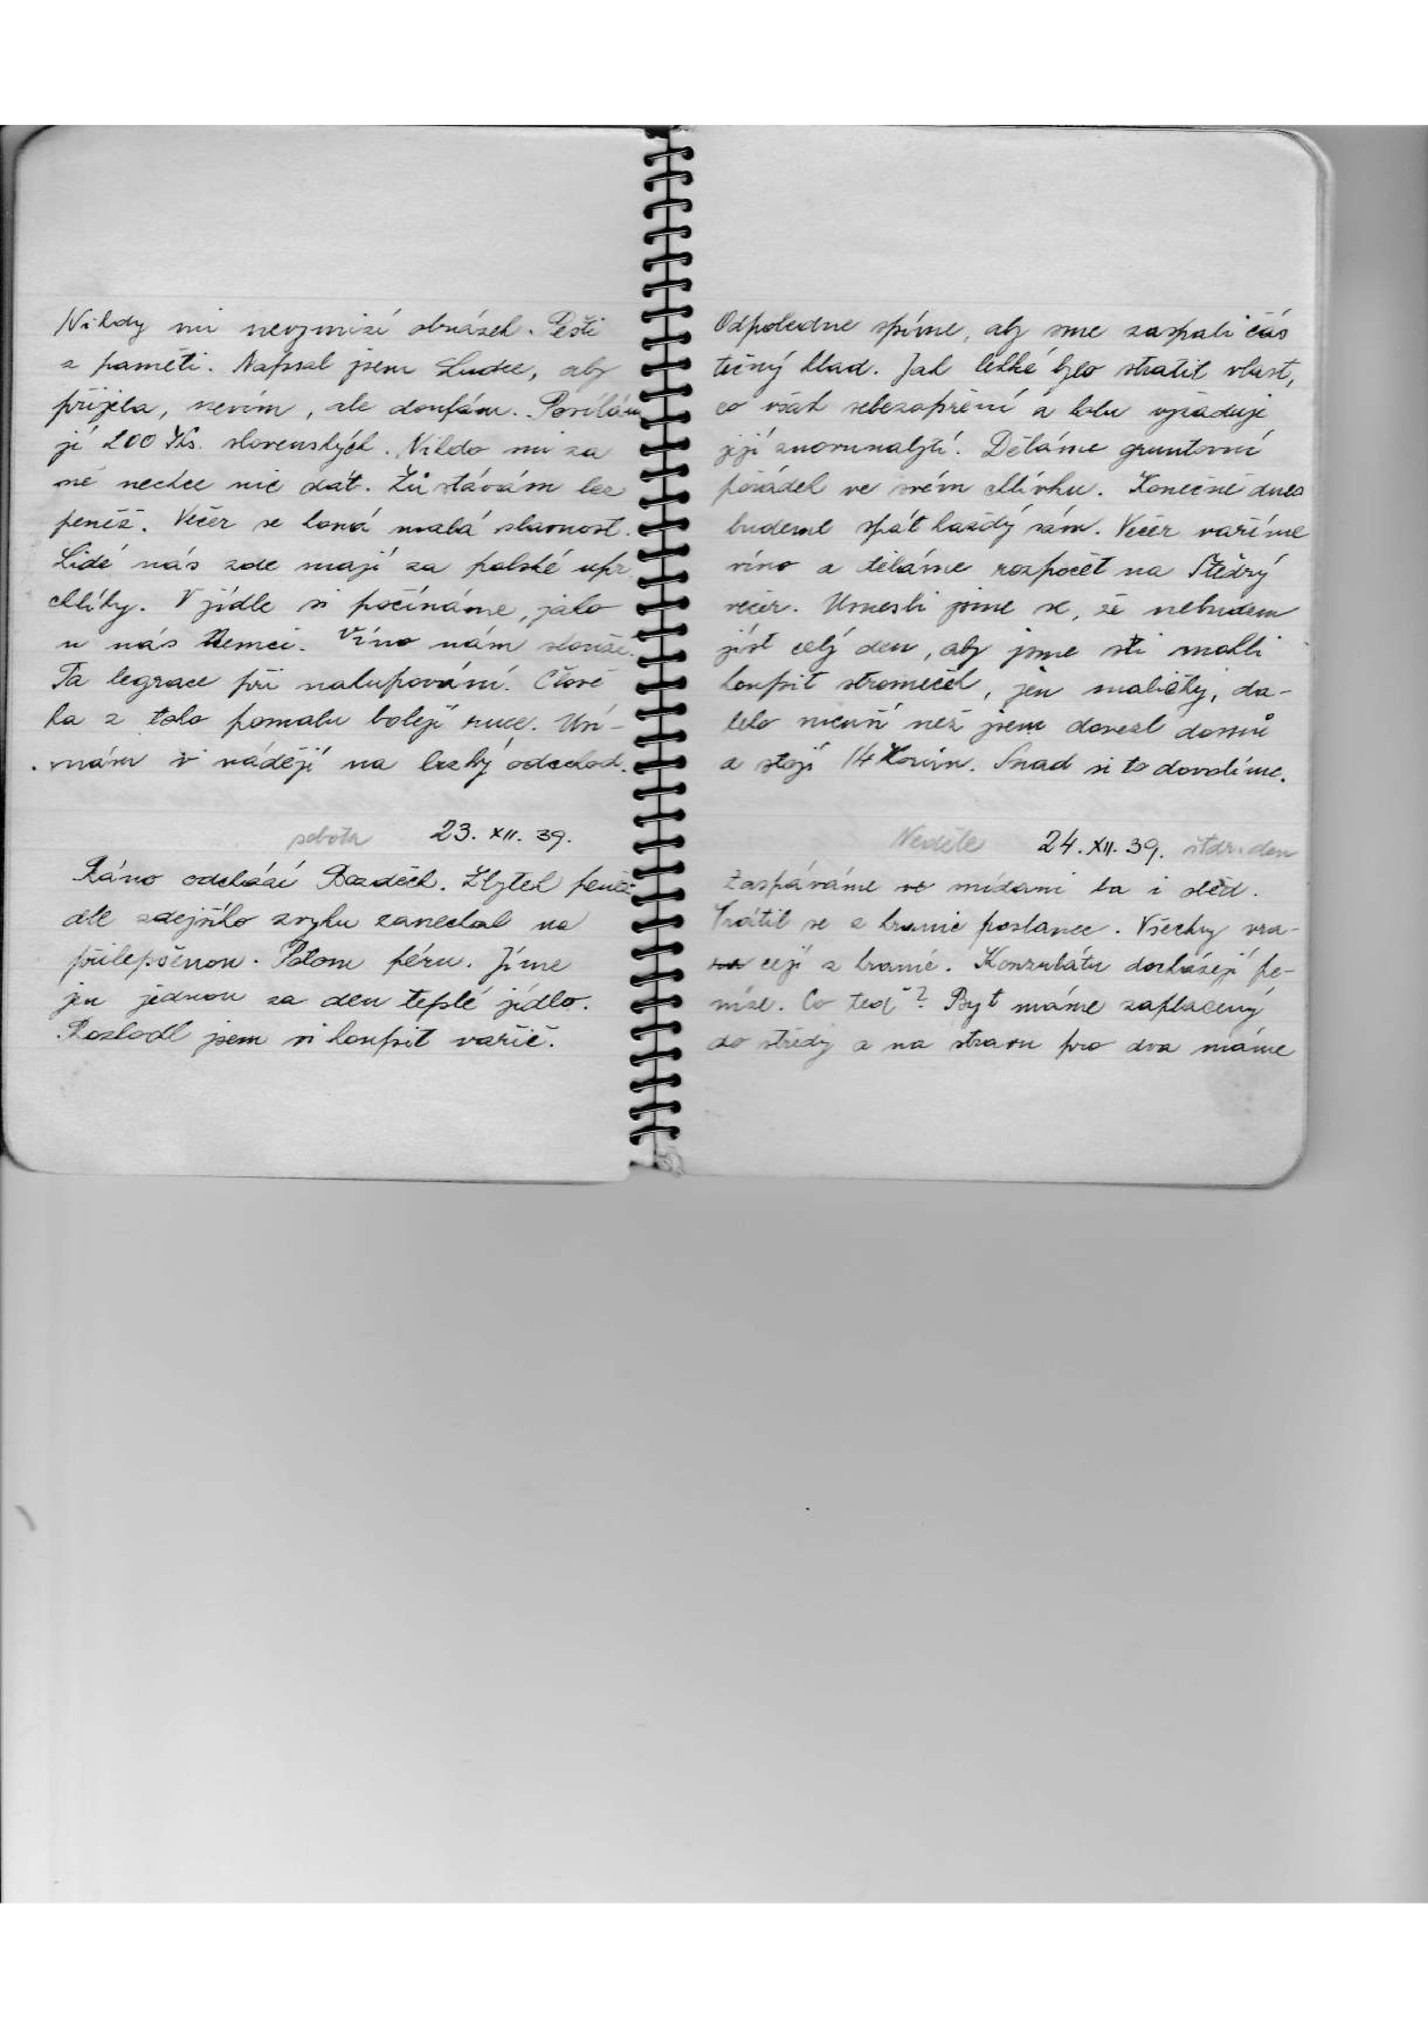 Nikdy mi nevymizí obrázek. Pešti
z paměti. Napsal jsem Ludce, aby
přijela, nevím, ale doufám. Posílám
jí 200 Ks. slovenských. Nikdo mi za
ně nechce nic dát. Zůstávám bez
peněz. Večer se koná malá slavnost.
Lidé nás zde mají za polské upr
chlíky. V jídle si počínáme, jako
u nás Němci. Víno nám slouží.
Ta legrace při nakupování. Člově
ka z toho pomalu bolejí ruce. Usí-
nám v nádějí na brzký odchod.
sobota 23. XII. 39.
Ráno odchází Bozděch. Zbytek peněz
dle zdejšího zvyku zanechal na
přilepšenou. Potom péru. Jíme
jen jednou za den teplé jídlo.
Rozhodl jsem si koupit vařič.
Odpoledne spíme, aby sme zaspali čás
tečný hlad. Jak lehké bylo stratit vlast,
co však sebezapření a bolu vyžaduje
její znovunabytí. Děláme gruntovní
pořádek ve svém chlívku. Konečně dnes
budeme spát každý sám. Večer vaříme
víno a děláme rozpočet na Štědrý
večer. Usnesli jsme se, že nebudem
jíst celý den, aby jsme si mohli
koupit stromeček, jen maličký, da-
leko menší než jsem dovezl domů
a stojí 14 Korun. Snad si to dovolíme.
Neděle 24. XII. 39. štdr. den
Zaspáváme se snídani ba i oběd.
Vrátil se z hranic poslanec. Všechny vra-
cejí z hranic. Konzulátu docházejí pe-
níze. Co teď? Byt máme zaplacený
do středy a na stravu pro dva máme